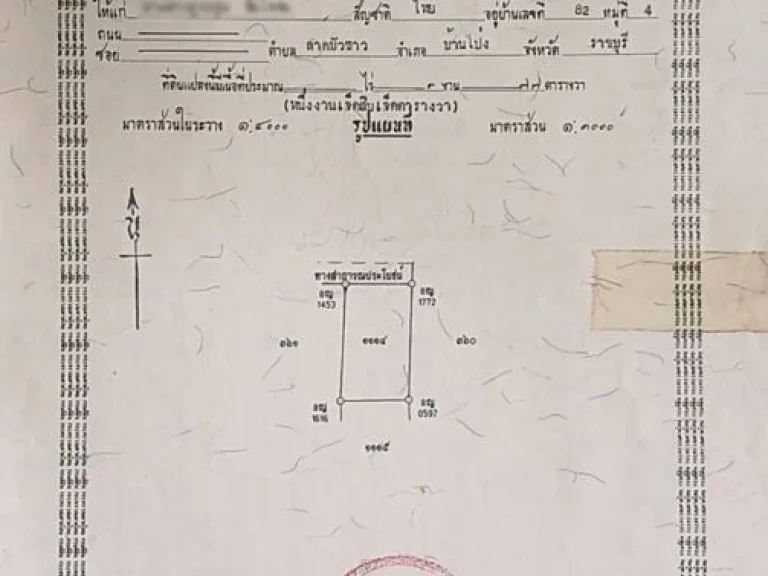 ให้แก่ สัญชาติ ไทย อยู่บ้านเลขที่ 82 หมู่ที่ 4
ถนน
ซอย ตำบล ลาดบัวขาว อำเภอ บ้านโป่ง จังหวัด ราชบุรี
ที่ดินแปลงนี้มีเนื้อที่ประมาณ ไร่ ๑ งาน ๗๗ ตารางวา
(หนึ่งงานเจ็ดสิบเจ็ดตารางวา)
มาตราส่วนในระวาง ๑:๔๐๐๐ รูปแผนที่ มาตราส่วน ๑:๑๐๐๐
น
ทางสาธารณประโยชน์
อญ 1453
อญ 1772
๓๖๑ ๑๑๑๔ ๓๖๐
อญ 1616
อญ 0597
๑๑๑๕